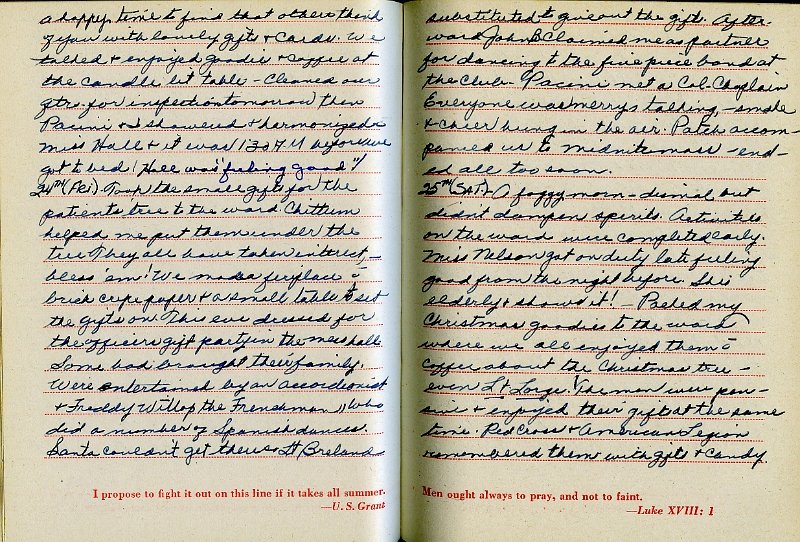 a happy time to find that others think
of you with lovely gifts & cards. We
talked & enjoyed goodies & coffee at
the candle lit table - Cleaned our
qtrs. for inspection tomorrow then
Pacini & I showered & harmonized
Miss Hall & it was before we
got to bed! Hall was "feeling good"!
24TH (Fri.) Took the small gifts for the
patients tree to the ward. Chittum
helped me put them under the
tree. They all have taken interest, -
bless 'em! We made a fireplace c̄
brick crepe paper & a small table to set
the gifts on. This eve dressed for
the officers gift party in the mess hall.
Some had brought their family.
Were entertained by an accordionist
& Freddy the Frenchman, who
did a number of Spanish dances.
Santa couldn't get there so Lt Breland
I propose to fight it out on this line if it takes all summer.
—U. S. Grant
substituted to give out the gifts. After-
ward John B. Claimed me as partner
for dancing to the five piece band at
the Club. Pacini met a Col. Chaplain
Everyone was merry & talking, - smoke
& cheer hung in the air. Patch accom-
panied us to midnite mass - end-
ed all too soon.
25TH (SAT.) A foggy morn - dismal but
didn't dampen spirits. Activities
on the ward were completed early.
Miss Nelson got on duty late feeling
good from the night before. She's
elderly & shows it! - Packed my
Christmas goodies to the ward
where we all enjoyed them c̄
coffee about the Christmas tree -
even Lt. The men were
& enjoyed their gifts at the same
time. Red Cross & American Legion
remembered them with gifts & candy
Men ought always to pray, and not to faint.
—Luke XVIII: 1